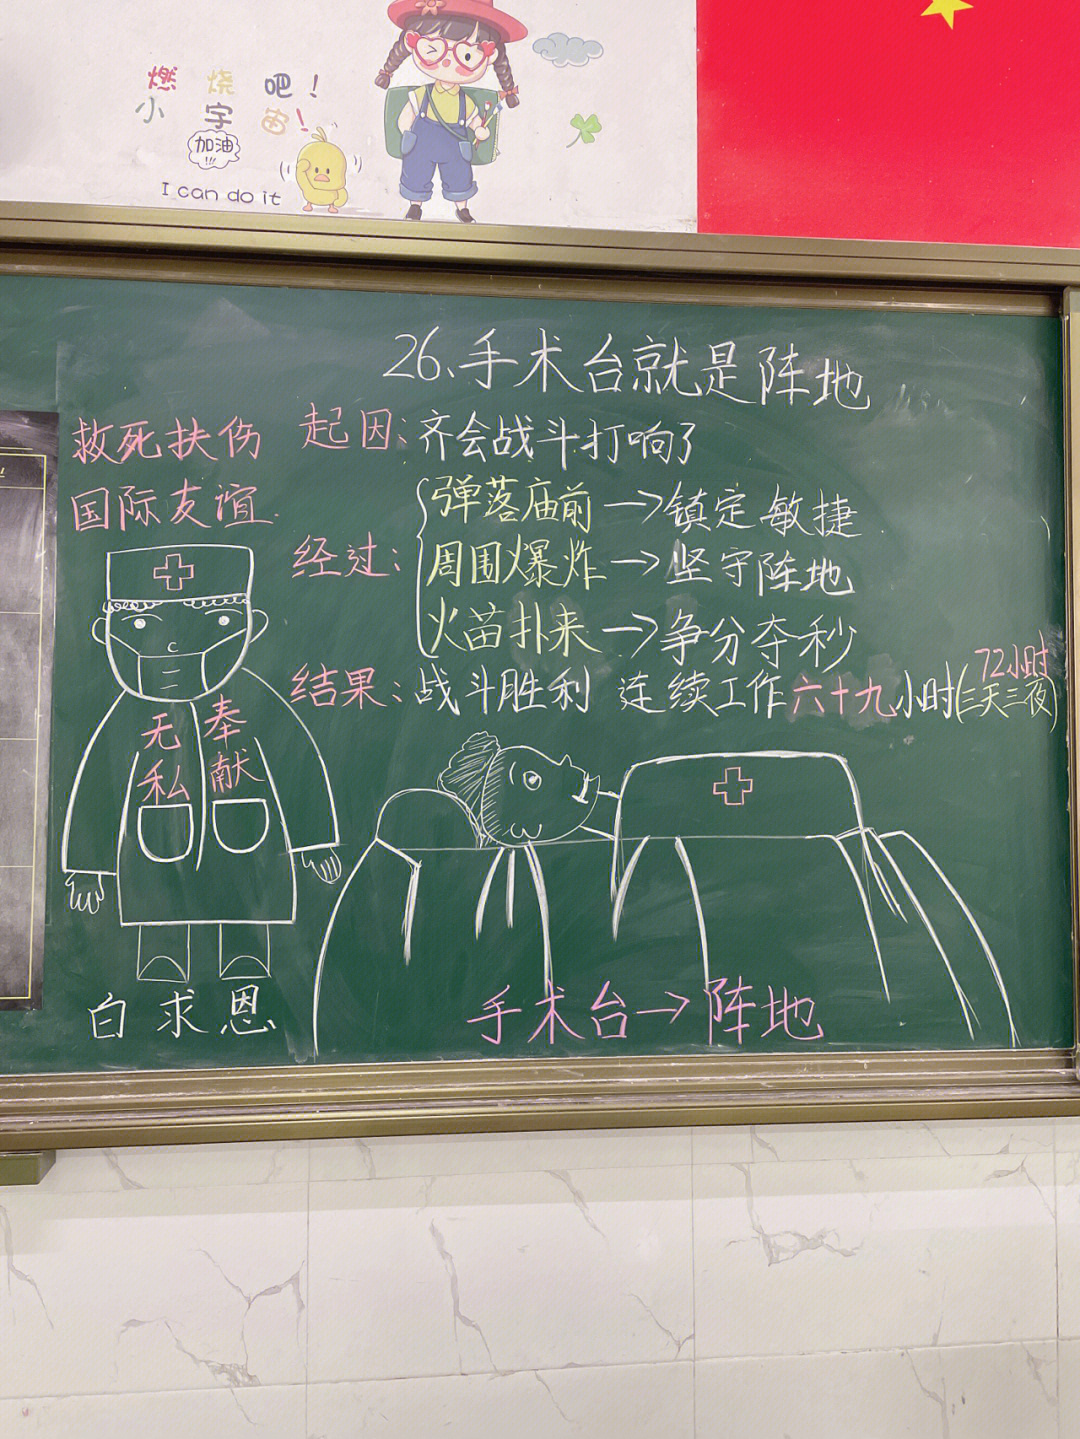 燃烧吧！
小宇宙！
加油
!!!
I can do it
26、手术台就是阵地
救死扶伤
国际友谊
起因：齐会战斗打响了
经过：
弹落庙前→镇定敏捷
周围爆炸→坚守阵地
火苗扑来→争分夺秒
结果：战斗胜利 连续工作六十九小时(三天三夜)
72小时
无私
奉献
白求恩
手术台→阵地